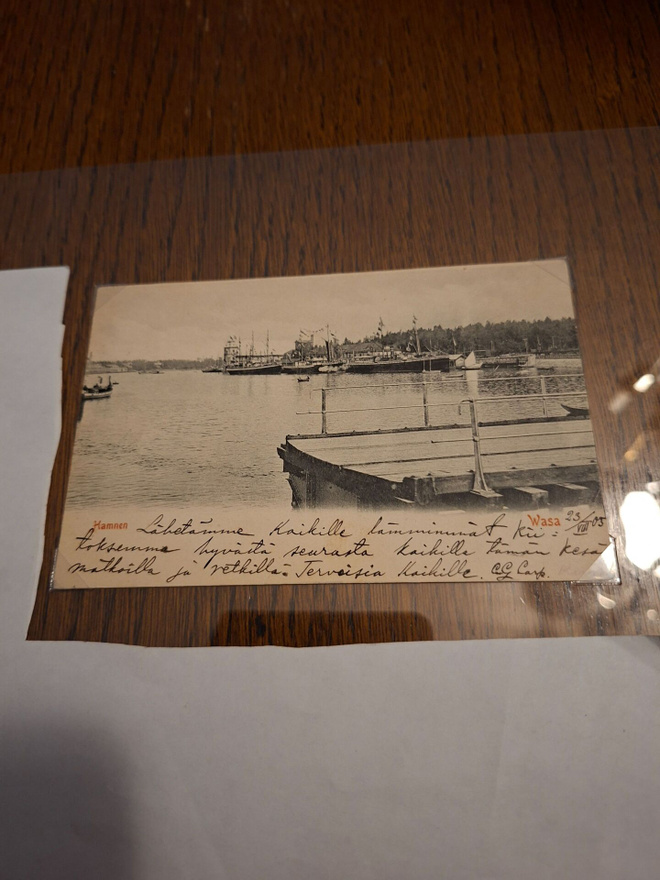 Hamnen
Wasa
23/VIII 03
Lähetämme Kaikille lämmimmät kii=
toksemme hyvästä seurasta kaikilla tämän kesä
matkoilla ja retkillä= Terveisia Kaikille. CG Carp.